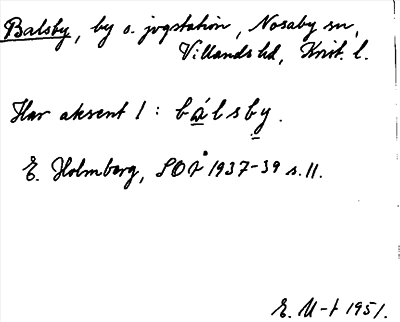 Balsby, by o. jvgstation, Nosaby sn,
Villands hd, Krist. l.
Har aksent 1: bálsby.
E. Holmberg, SOÅ 1937-39 s. 11.
E. U-t 1951.